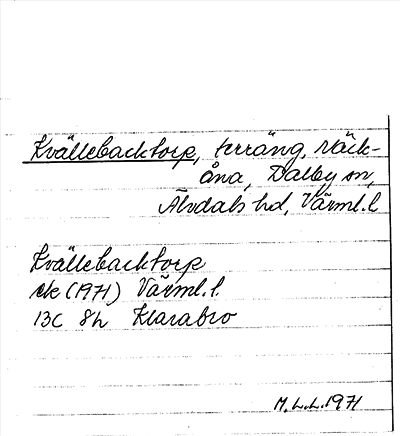 Kvällebacktorp, terräng, Näck-
åna, Dalby sn,
Älvdals hd, Värml. l.
Kvällebacktorp
ek (1971) Värml. l.
13C 8h Klarabro
M. L-L. 1971